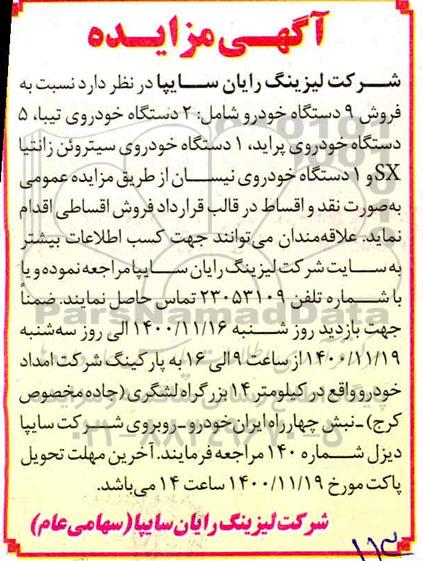 آگهـی مزایـده
شـرکت لیزینگ رایان سـایپا در نظر دارد نسبت به
فروش ۹ دستگاه خودرو شامل: ۲ دستگاه خودروی تیبا، ۵
دستگاه خودروی پراید، ۱ دستگاه خودروی سیتروئن زانتیا
SX و ۱ دستگاه خودروی نیسـان از طریق مزایده عمومی
به‌صورت نقد و اقساط در قالب قرارداد فروش اقساطی اقدام
نماید. علاقه‌مندان می‌توانند جهت کسب اطلاعات بیشتر
به سـایت شرکت لیزینگ رایان سـایپا مراجعه نموده و یا
با شـماره تلفن ۲۳۰۵۳۱۰۹ تماس حاصل نمایند. ضمناً
جهت بازدید روز شـنبه ۱۴۰۰/۱۱/۱۶ الی روز سه‌شنبه
۱۴۰۰/۱۱/۱۹ از ساعت ۹ الی ۱۶ به پارکینگ شرکت امداد
خودرو واقع در کیلومتر ۱۴ بزرگراه لشگری (جاده مخصوص
کرج) ـ نبش چهارراه ایران خودرو ـ روبروی شـرکت سایپا
دیزل شـماره ۱۴۰ مراجعه فرمایند. آخرین مهلت تحویل
پاکت مورخ ۱۴۰۰/۱۱/۱۹ ساعت ۱۴ می‌باشد.
شرکت لیزینگ رایان سایپا (سهامی عام)
ParsNamadData